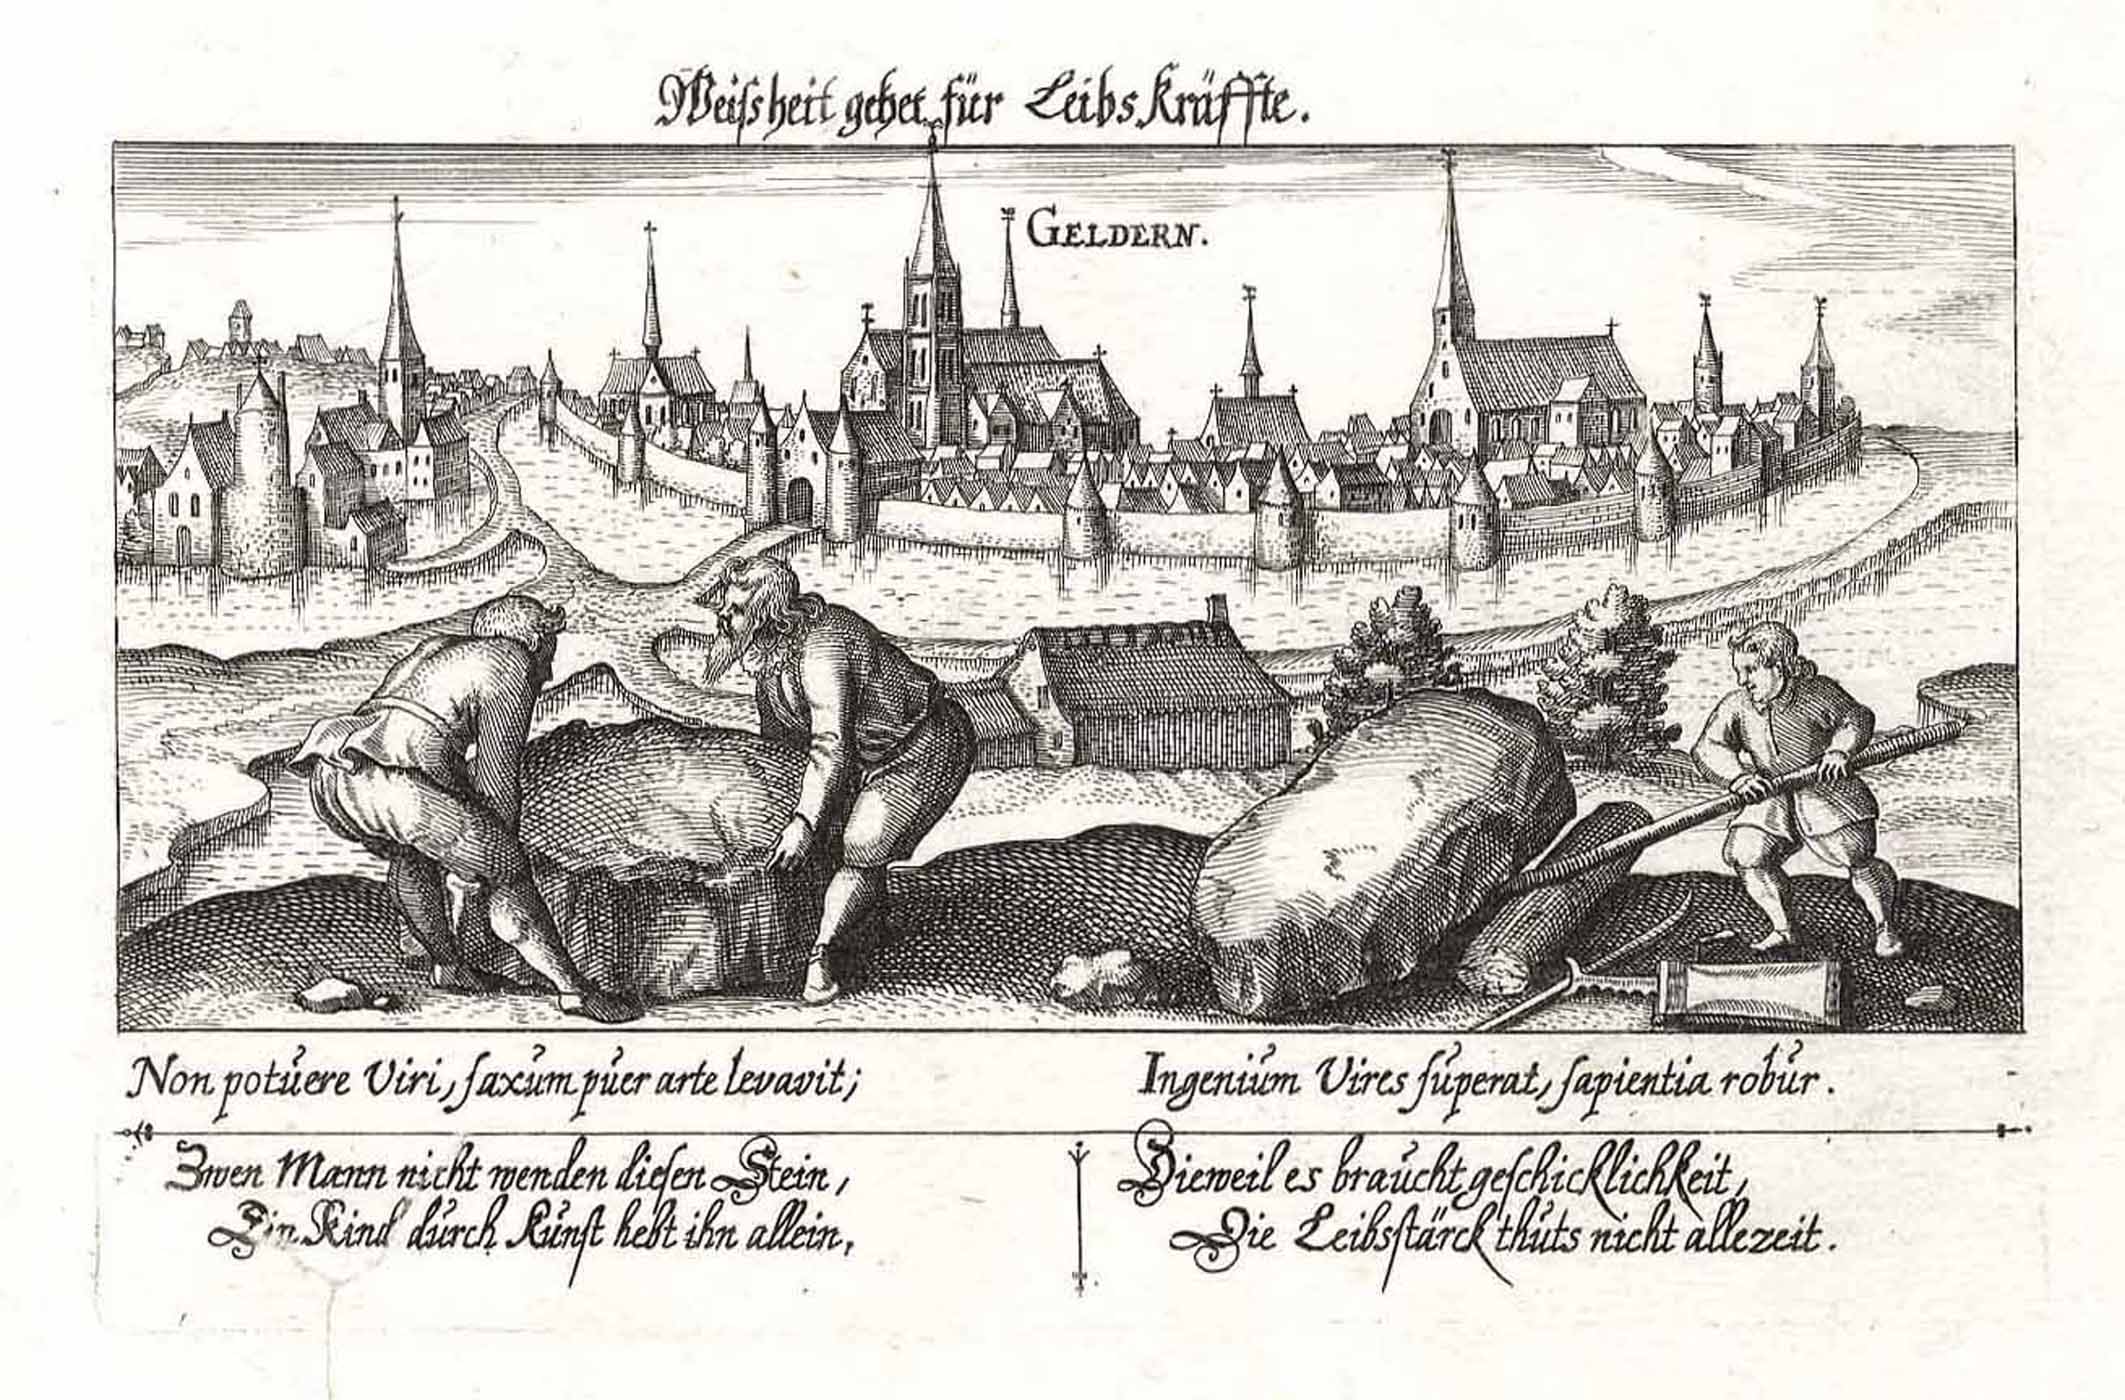 Weiſsheit gehet für Leibs Kräffte.
GELDERN.
Non potŭere Viri, ſaxŭm pŭer arte levavit;
Ingeniŭm Vires ſŭperat, ſapientia robŭr.
Zwen Mann nicht wenden dieſen Stein,
Ein Kind dŭrch Kŭnſt hebt ihn allein,
Dieweil es braŭcht geſchicklichkeit,
Die Leibsſtärck thŭts nicht allezeit.